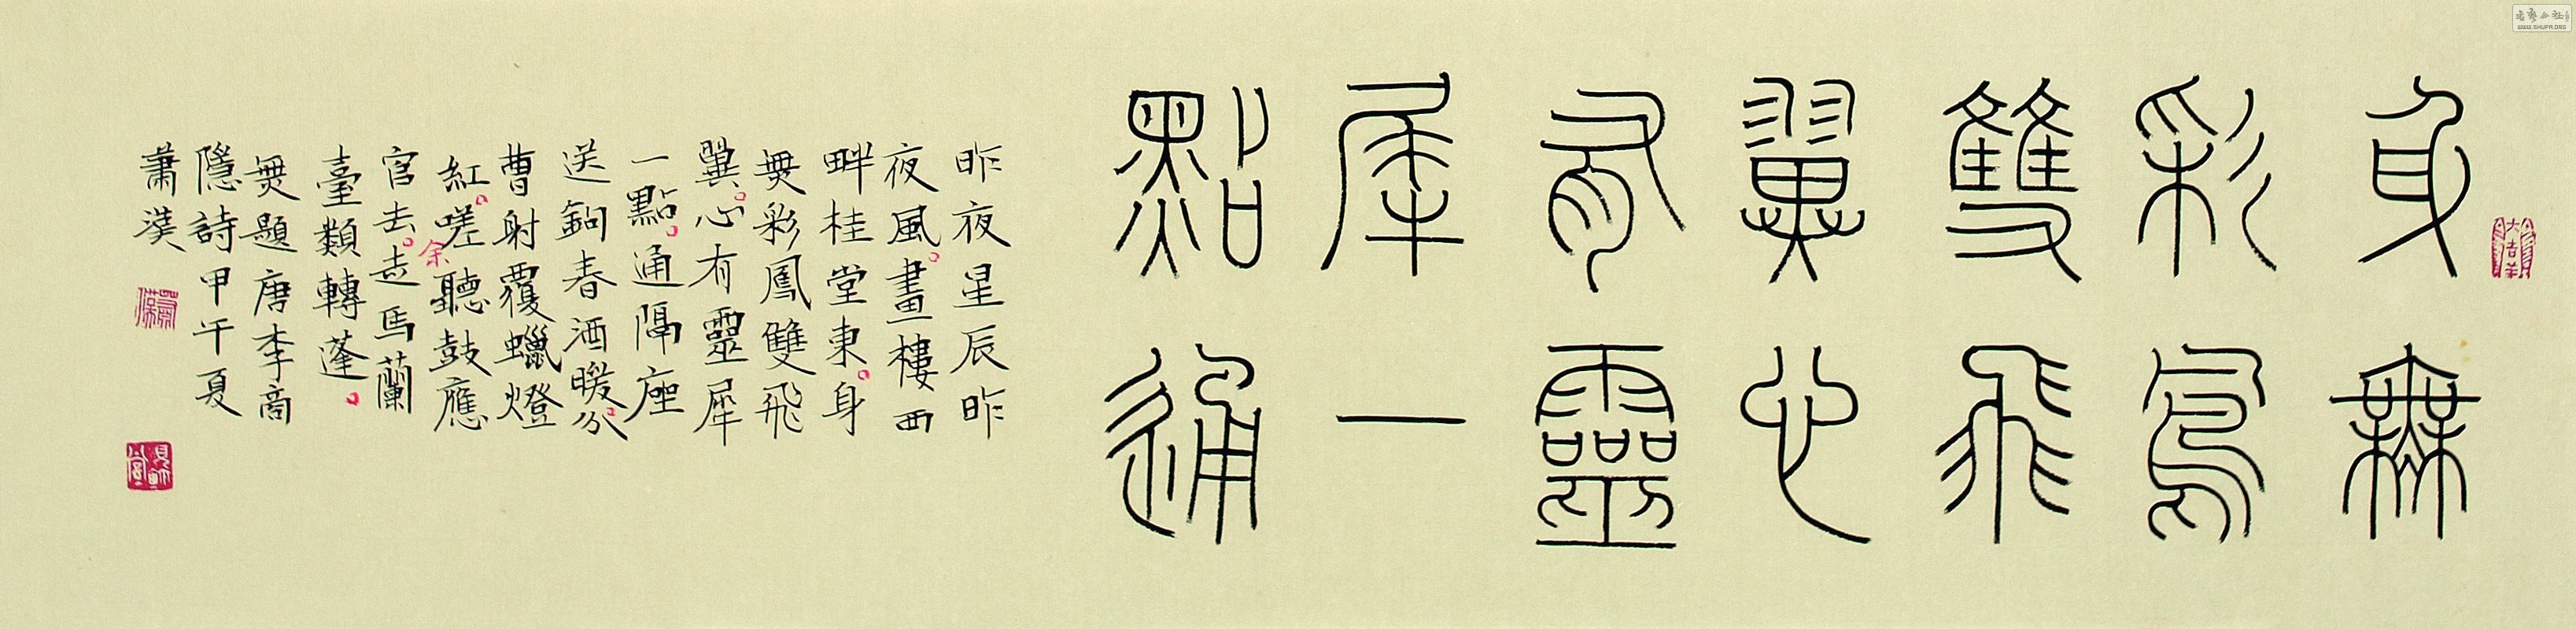 身無
彩鳳
雙飛
翼心
有靈
犀一
點通
昨夜星辰昨
夜風畫樓西
畔桂堂東身
無彩鳳雙飛
翼心有靈犀
一點通隔座
送鉤春酒暖分
曹射覆蠟燈
紅嗟余聽鼓應
官去走馬蘭
臺類轉蓬
無題唐李商
隱詩甲午夏
蕭漢
WWW.SHUFA.ORG